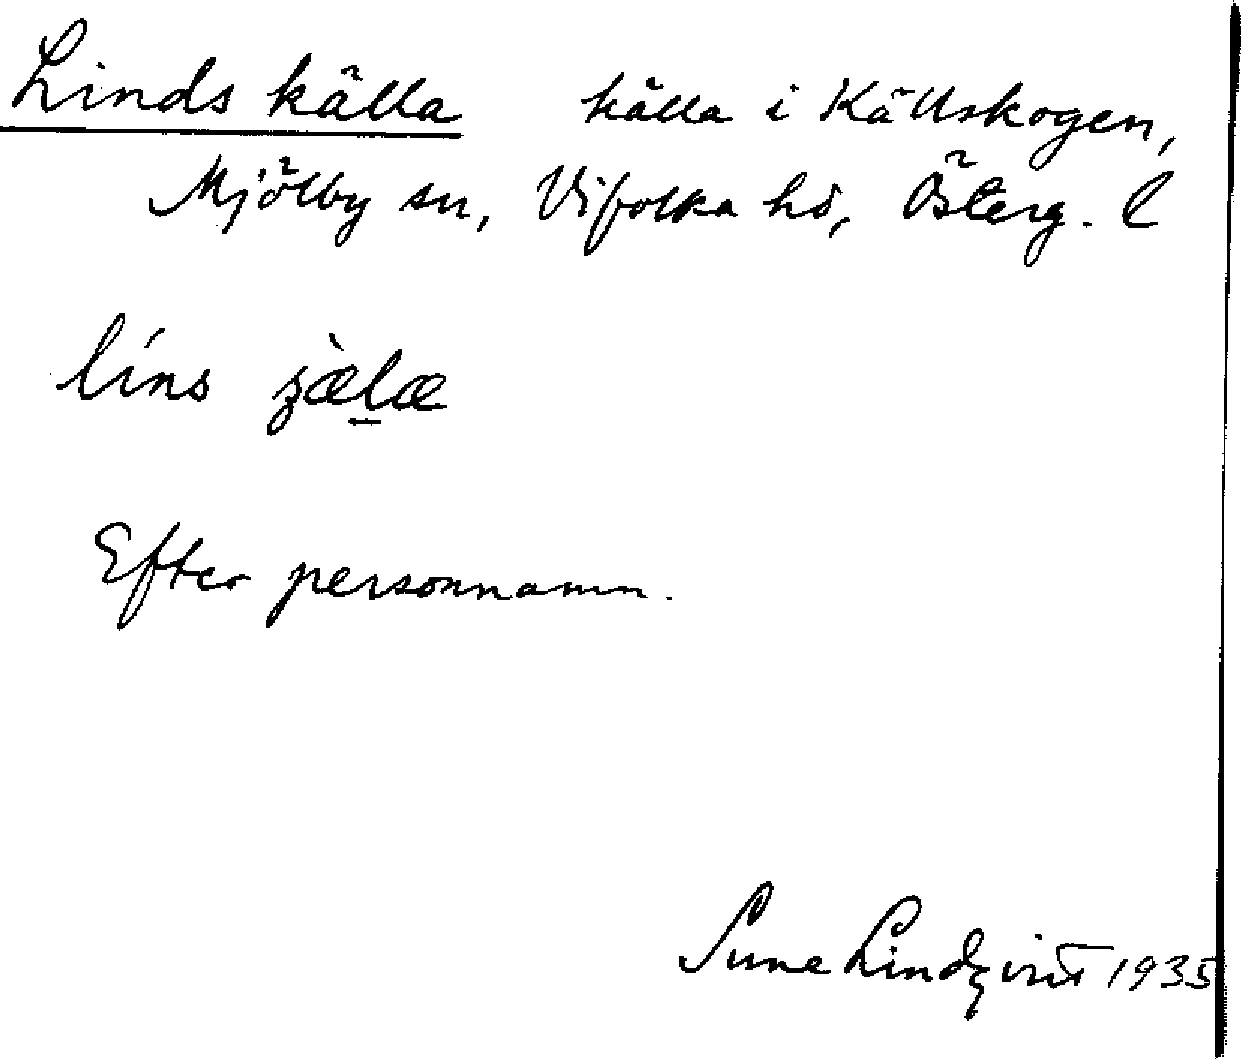 Linds källa källa i Källskogen,
Mjölby sn, Vifolka hd, Österg. l
líns ʒæ̀læ
Efter personnamn.
Sune Lindqvist 1935